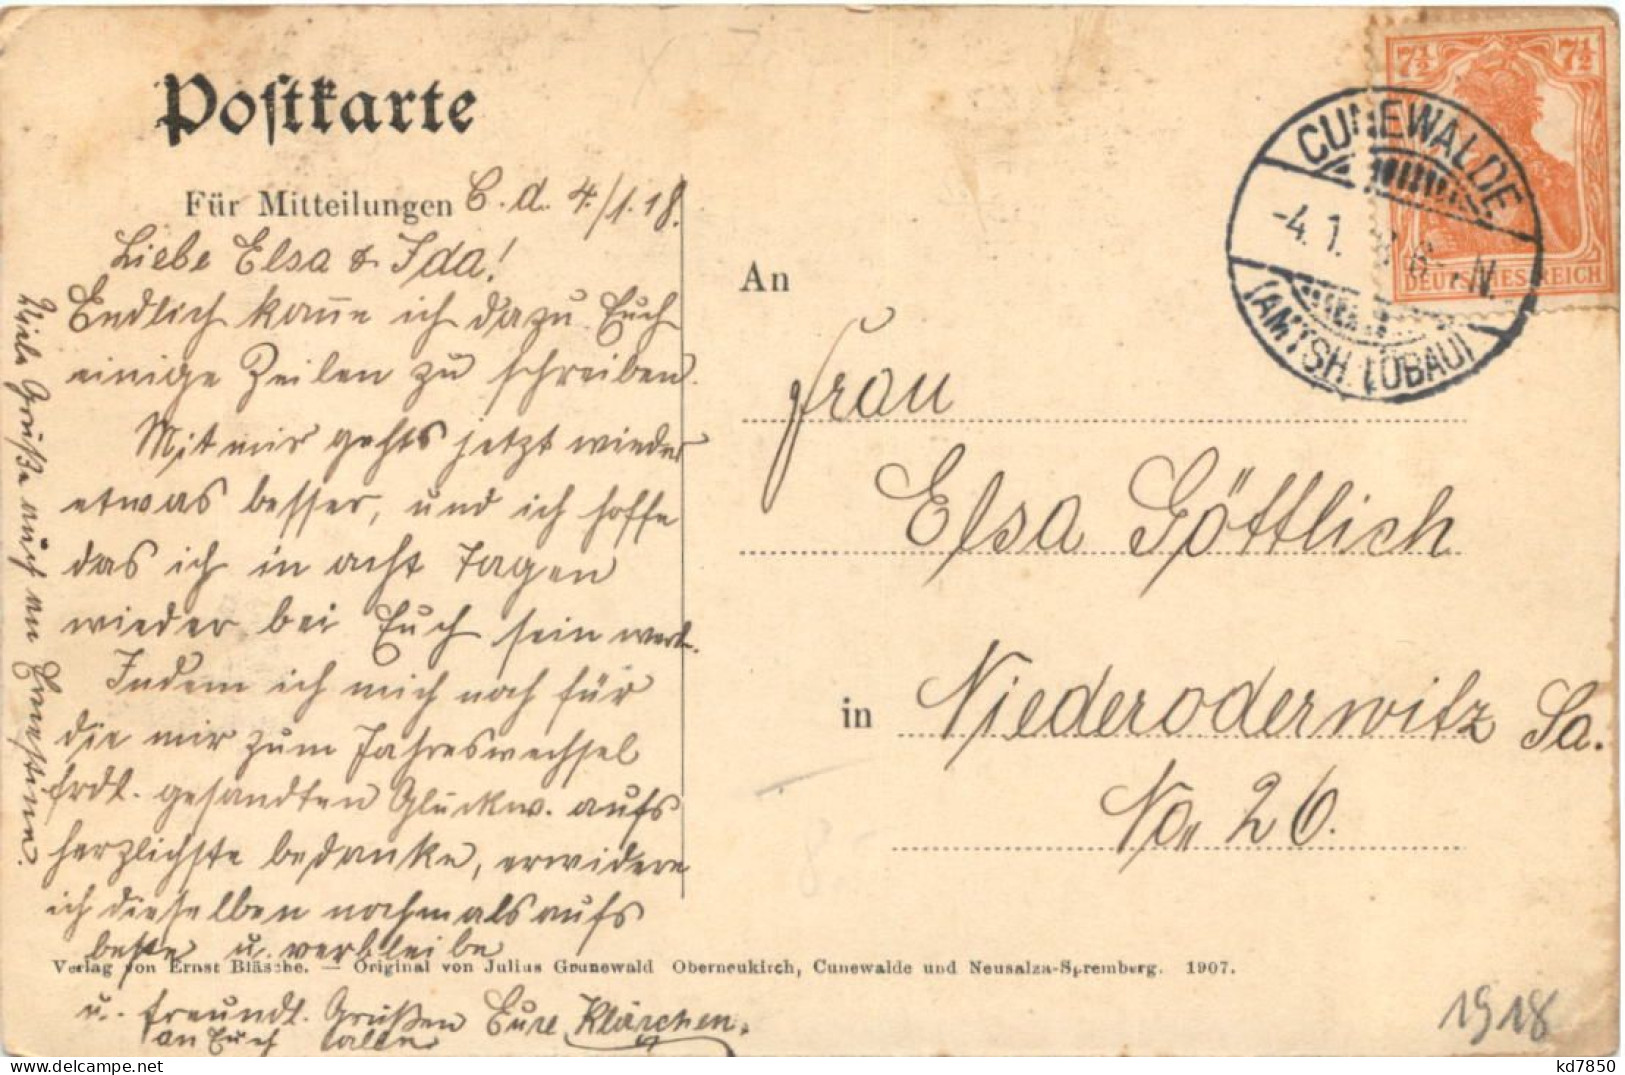 Postkarte
Für Mitteilungen C. d. 4./1.18.
Liebe Elsa & Ida!
Endlich kann ich dazu Euch
einige Zeilen zu schreiben.
Mit mir gehts jetzt wieder
etwas besser, und ich hoffe
das ich in acht Tagen
wieder bei Euch sein werde.
Indem ich mich noch für
die mir zum Jahreswechsel
frdl. gesandten Glückw. aufs
herzlichste bedanke, erwidere
ich dieselben nochmals aufs
beste u. verbleibe
u. freundl. Grüßen Eure Klärchen.
an Euch alle
Viele Grüße auch an Ernestine.
Verlag von Ernst Bläsche. — Original von Julius Grunewald Oberneukirch, Cunewalde und Neusalza-Spremberg. 1907.
An
Frau
Elsa Göttlich
in Niederoderwitz Sa.
No. 26.
7½ 7½
DEUTSCHES REICH
CUNEWALDE
-4.1. 6-7N.
(AMTSH. LÖBAU)
1918
kd7850